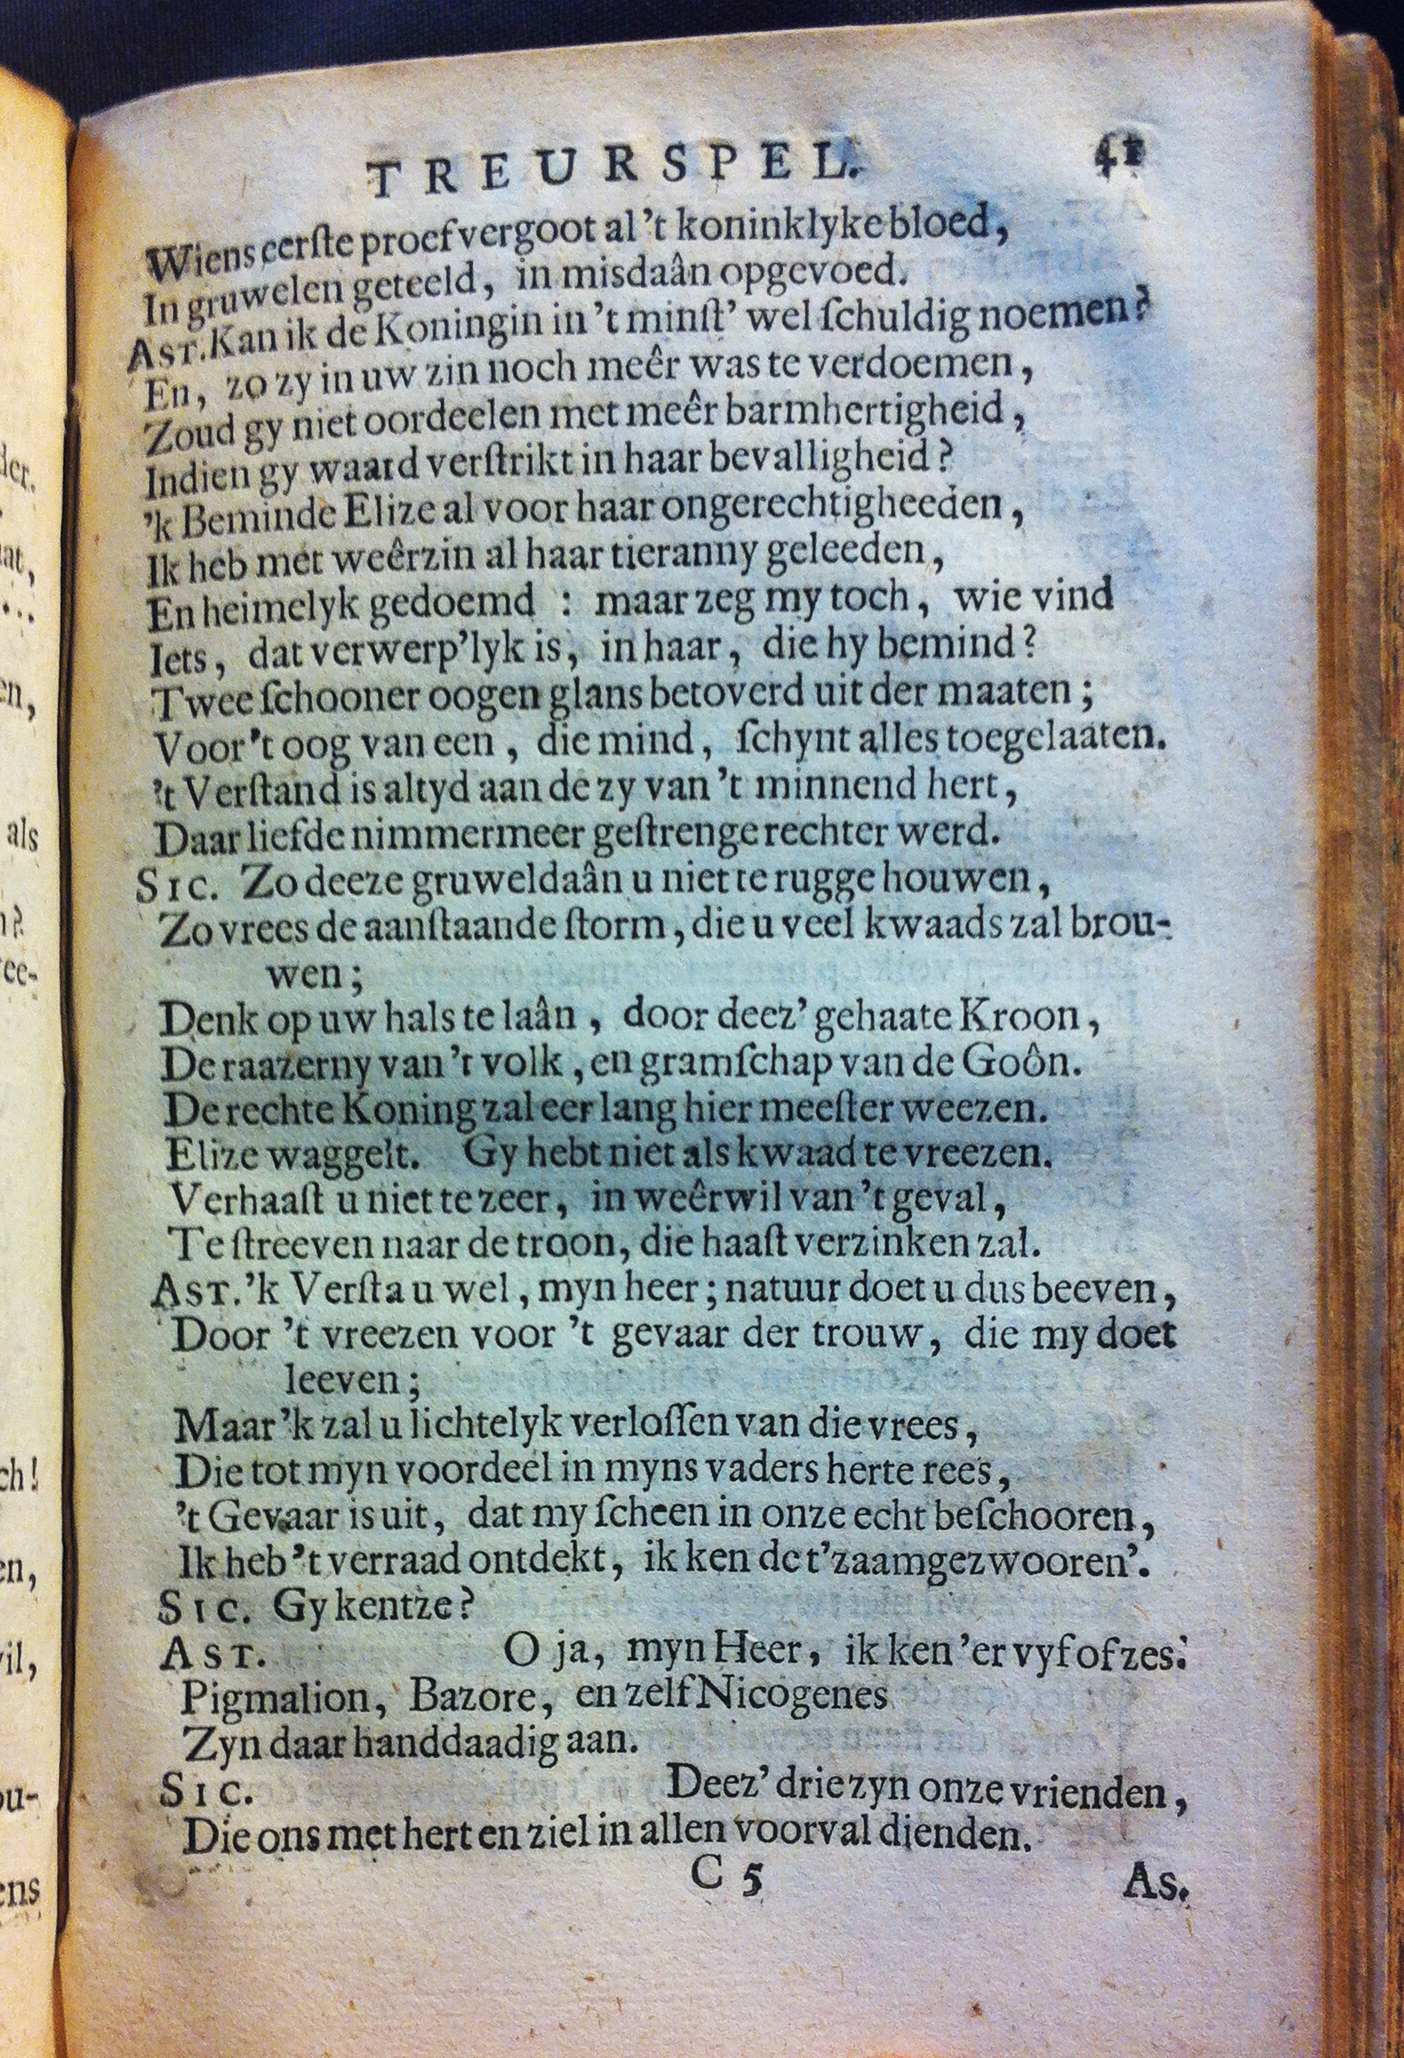 TREURSPEL. 41
Wiens eerſte proef vergoot al 't koninklyke bloed,
In gruwelen geteeld, in misdaân opgevoed.
AST. Kan ik de Koningin in 't minſt' wel ſchuldig noemen?
En, zo zy in uw zin noch meêr was te verdoemen,
Zoud gy niet oordeelen met meêr barmhertigheid,
Indien gy waard verſtrikt in haar bevalligheid?
'k Beminde Elize al voor haar ongerechtigheeden,
Ik heb met weêrzin al haar tieranny geleeden,
En heimelyk gedoemd : maar zeg my toch, wie vind
Iets, dat verwerp'lyk is, in haar, die hy bemind?
Twee ſchooner oogen glans betoverd uit der maaten;
Voor 't oog van een, die mind, ſchynt alles toegelaaten.
't Verſtand is altyd aan de zy van 't minnend hert,
Daar liefde nimmermeer geſtrenge rechter werd.
SIC. Zo deeze gruweldaân u niet te rugge houwen,
Zo vrees de aanſtaande ſtorm, die u veel kwaads zal brou-
wen;
Denk op uw hals te laân, door deez' gehaate Kroon,
De raazerny van 't volk, en gramſchap van de Goôn.
De rechte Koning zal eer lang hier meeſter weezen.
Elize waggelt. Gy hebt niet als kwaad te vreezen.
Verhaaſt u niet te zeer, in weêrwil van 't geval,
Te ſtreeven naar de troon, die haaſt verzinken zal.
AST. 'k Verſta u wel, myn heer; natuur doet u dus beeven,
Door 't vreezen voor 't gevaar der trouw, die my doet
leeven;
Maar 'k zal u lichtelyk verloſſen van die vrees,
Die tot myn voordeel in myns vaders herte rees,
't Gevaar is uit, dat my ſcheen in onze echt beſchooren,
Ik heb 't verraad ontdekt, ik ken de t'zaamgezwooren'.
SIC. Gy kentze?
AST. O ja, myn Heer, ik ken 'er vyf of zes.
Pigmalion, Bazore, en zelf Nicogenes
Zyn daar handdaadig aan.
SIC. Deez' drie zyn onze vrienden,
Die ons met hert en ziel in allen voorval dienden.
C 5 As.